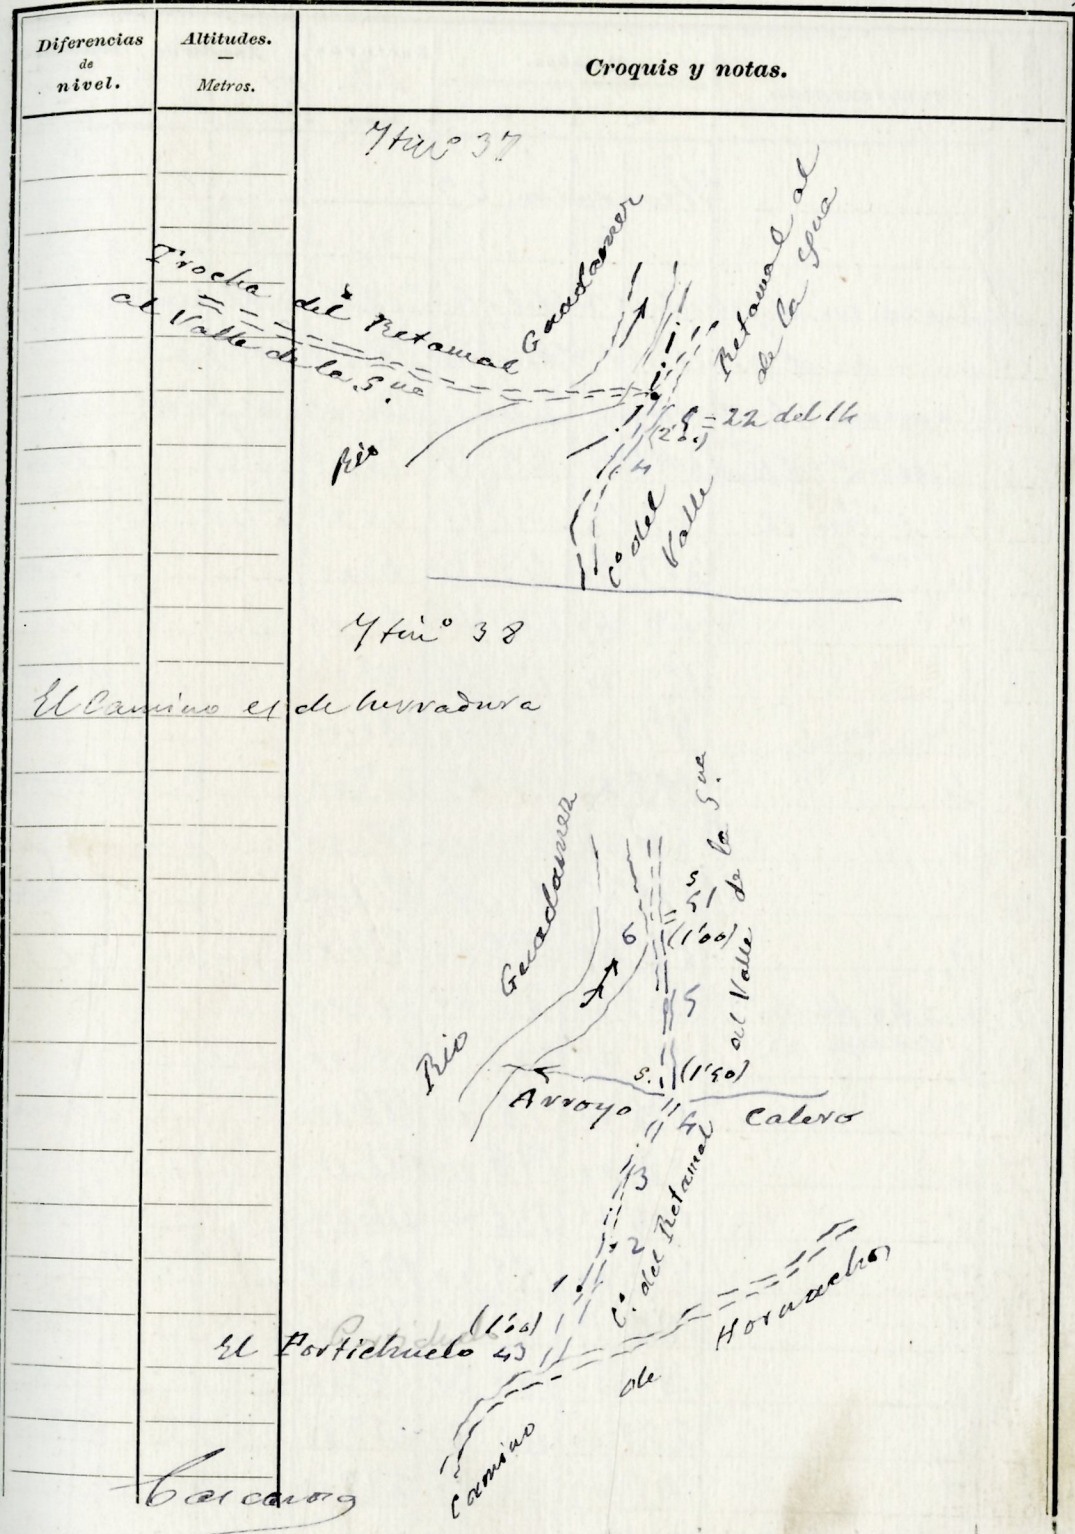 Diferencias
de
nivel.
Altitudes.
Metros.
Croquis y notas.
Itinº 37
Trocha del Retamal
al Valle de la S.na
Guadamez
Rio
Retamal al
de la Sna
= 22 del 14
(2'00)
4
Cº del
Valle
Itinº 38
El Camino es de herradura
Rio Guadamez
al Valle de la S.na
S
51
6 (1'00)
5
S. (1'50)
Arroyo Calero
4
3
2
1
Cº. del Retamal
(1'00)
El Portichuelo 43
Camino de Hornachos